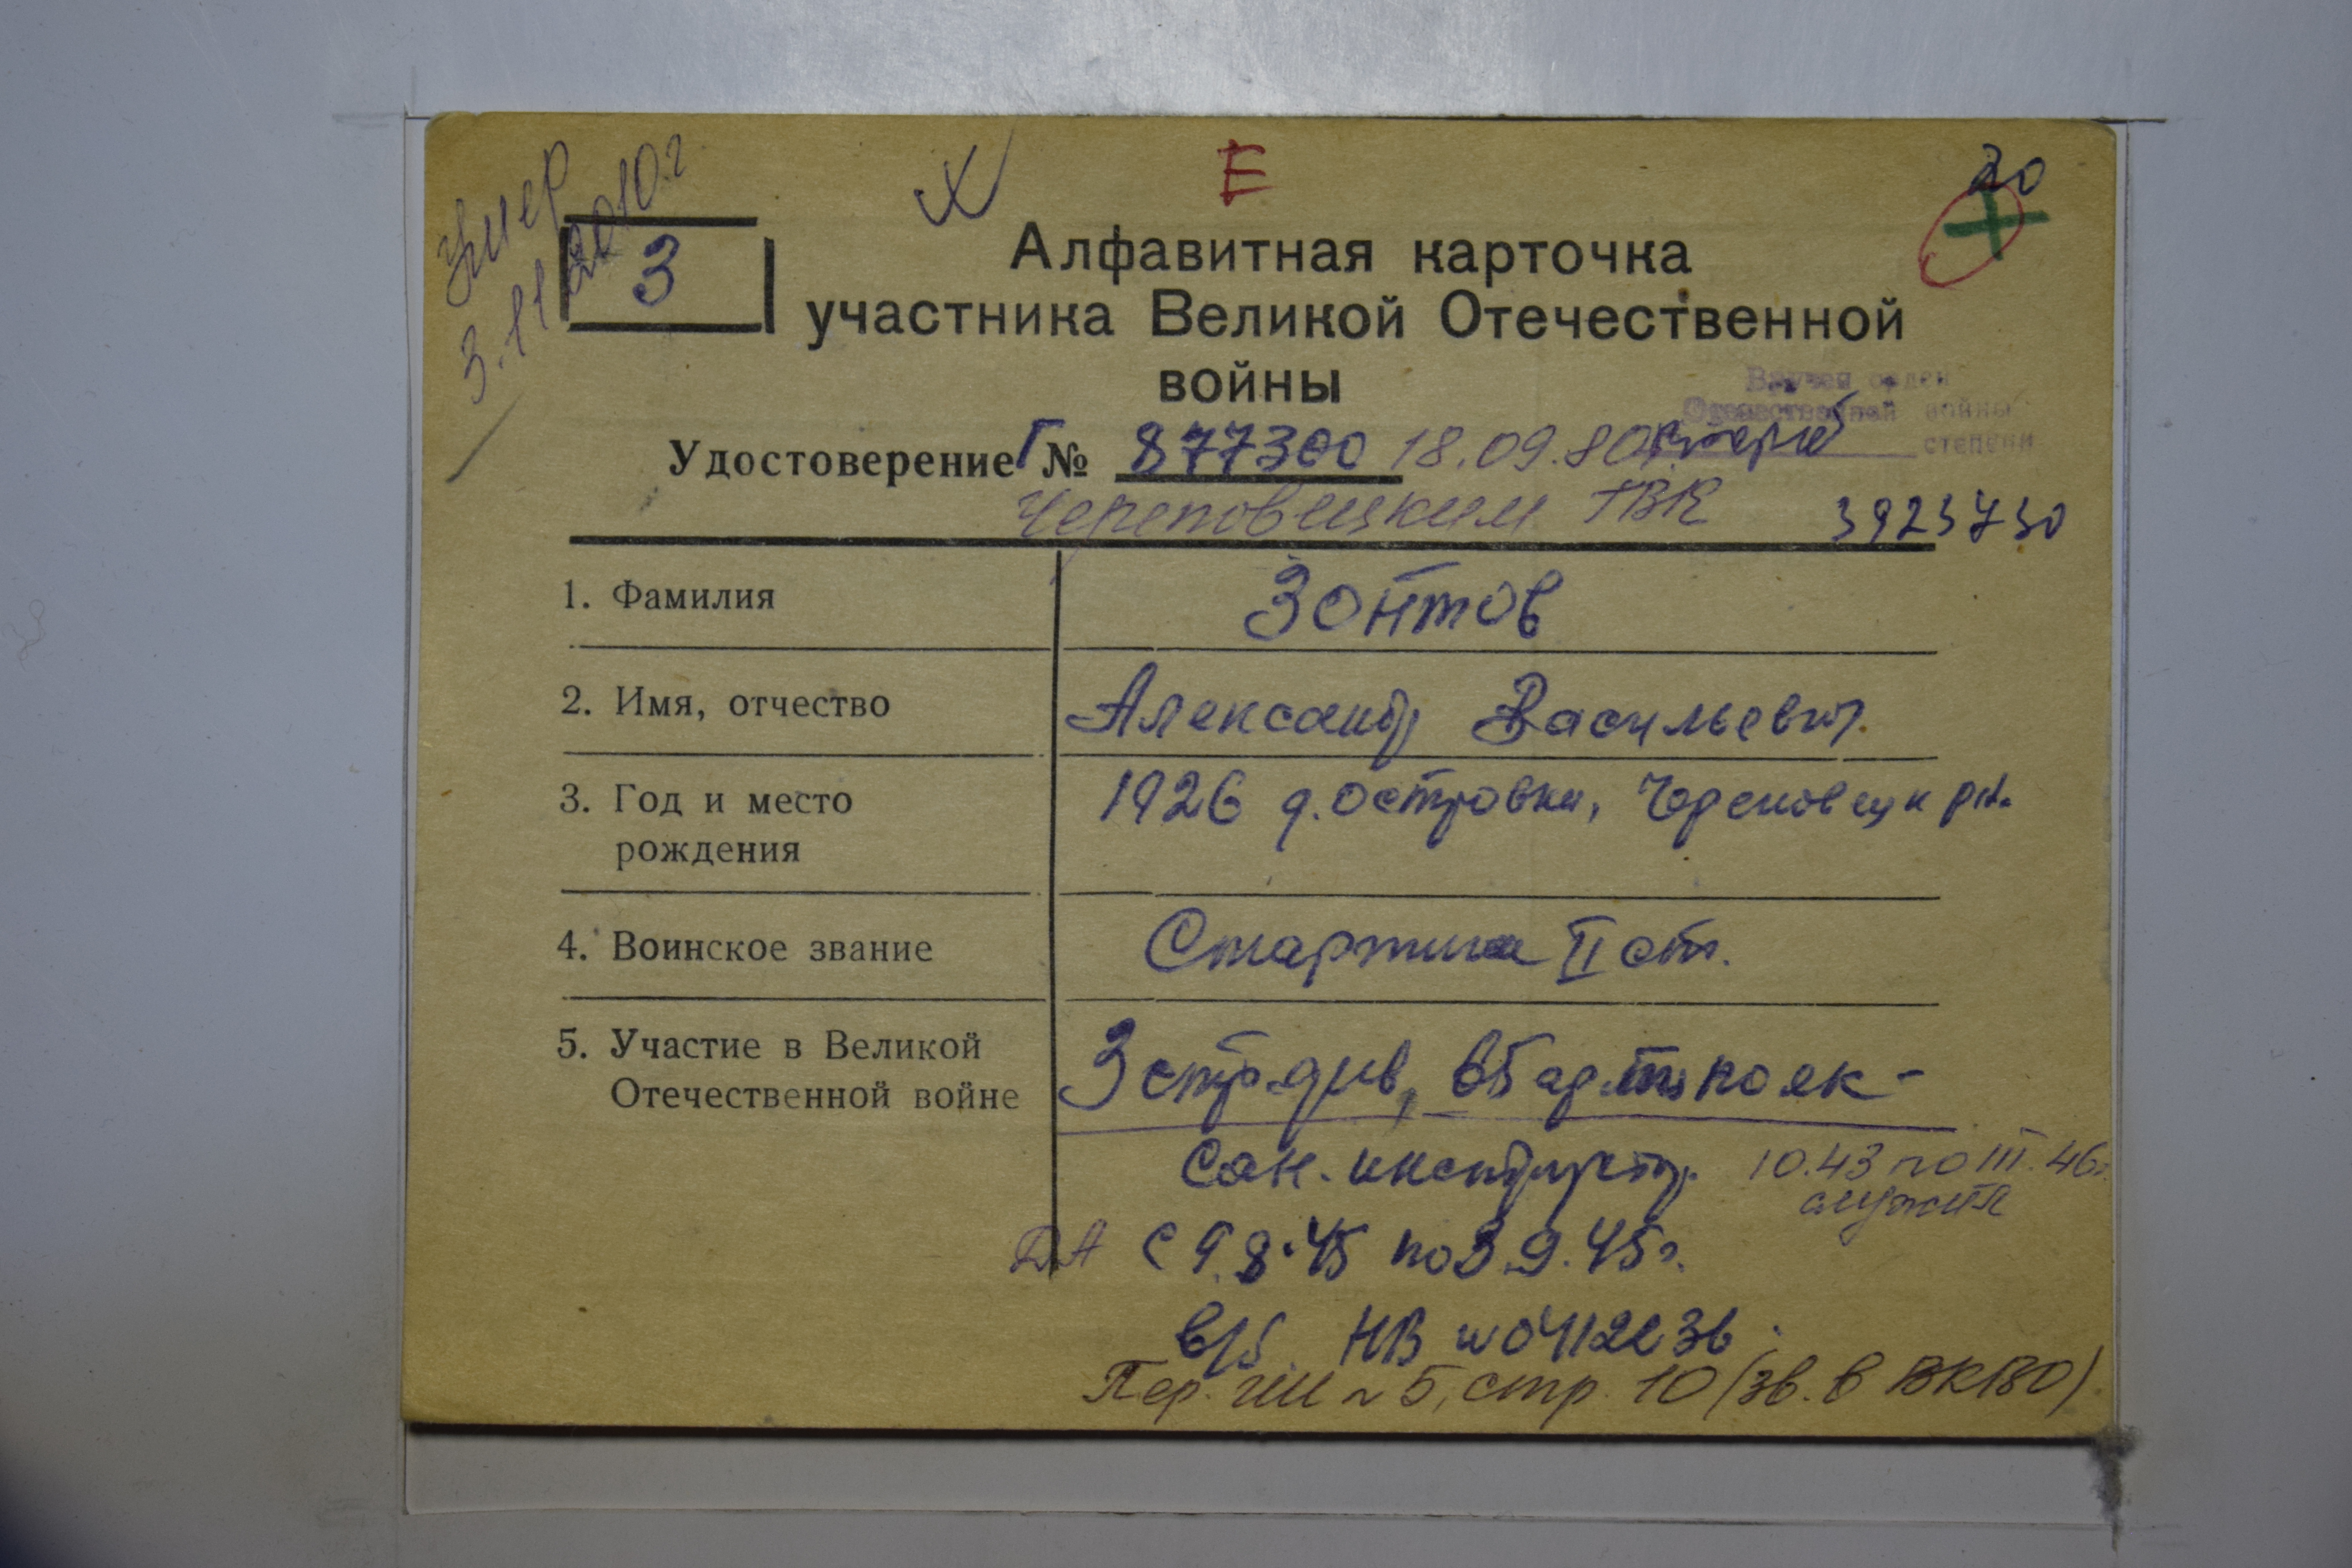 умер
3.11.2010.г
X
Е
20
З
Алфавитная карточка
участника Великой Отечественной
войны
Вручен орден
Отечественной войны
степени
Удостоверение Г № 877300 18.09.80г
Череповецким ГВК 3923730
1. Фамилия Зонтов
2. Имя, отчество Александр Васильевич.
3. Год и место 1926 д. Островки, Череповецк р-н.
рождения
4. Воинское звание Старшина II ст.
5. Участие в Великой 3 стр. див,
Отечественной войне
Сан. инструктр. 10.43 по III.46г.
служил
ДА с 9.8.45 по 3.9.45г.
в/б НВ
Пер. №5, стр. 10 (зв. в